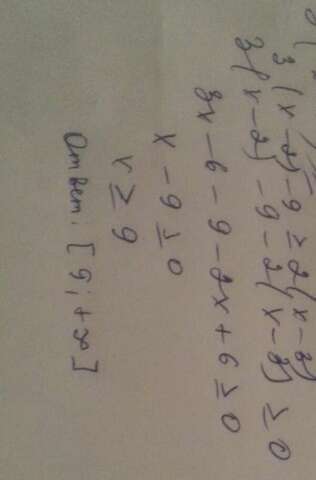 3(x-2)-9≥2(x-3)
3(x-2)-9-2(x-3)≥0
3x-6-9-2x+6≥0
x-9≥0
x≥9
Ответ: [9;+∞[